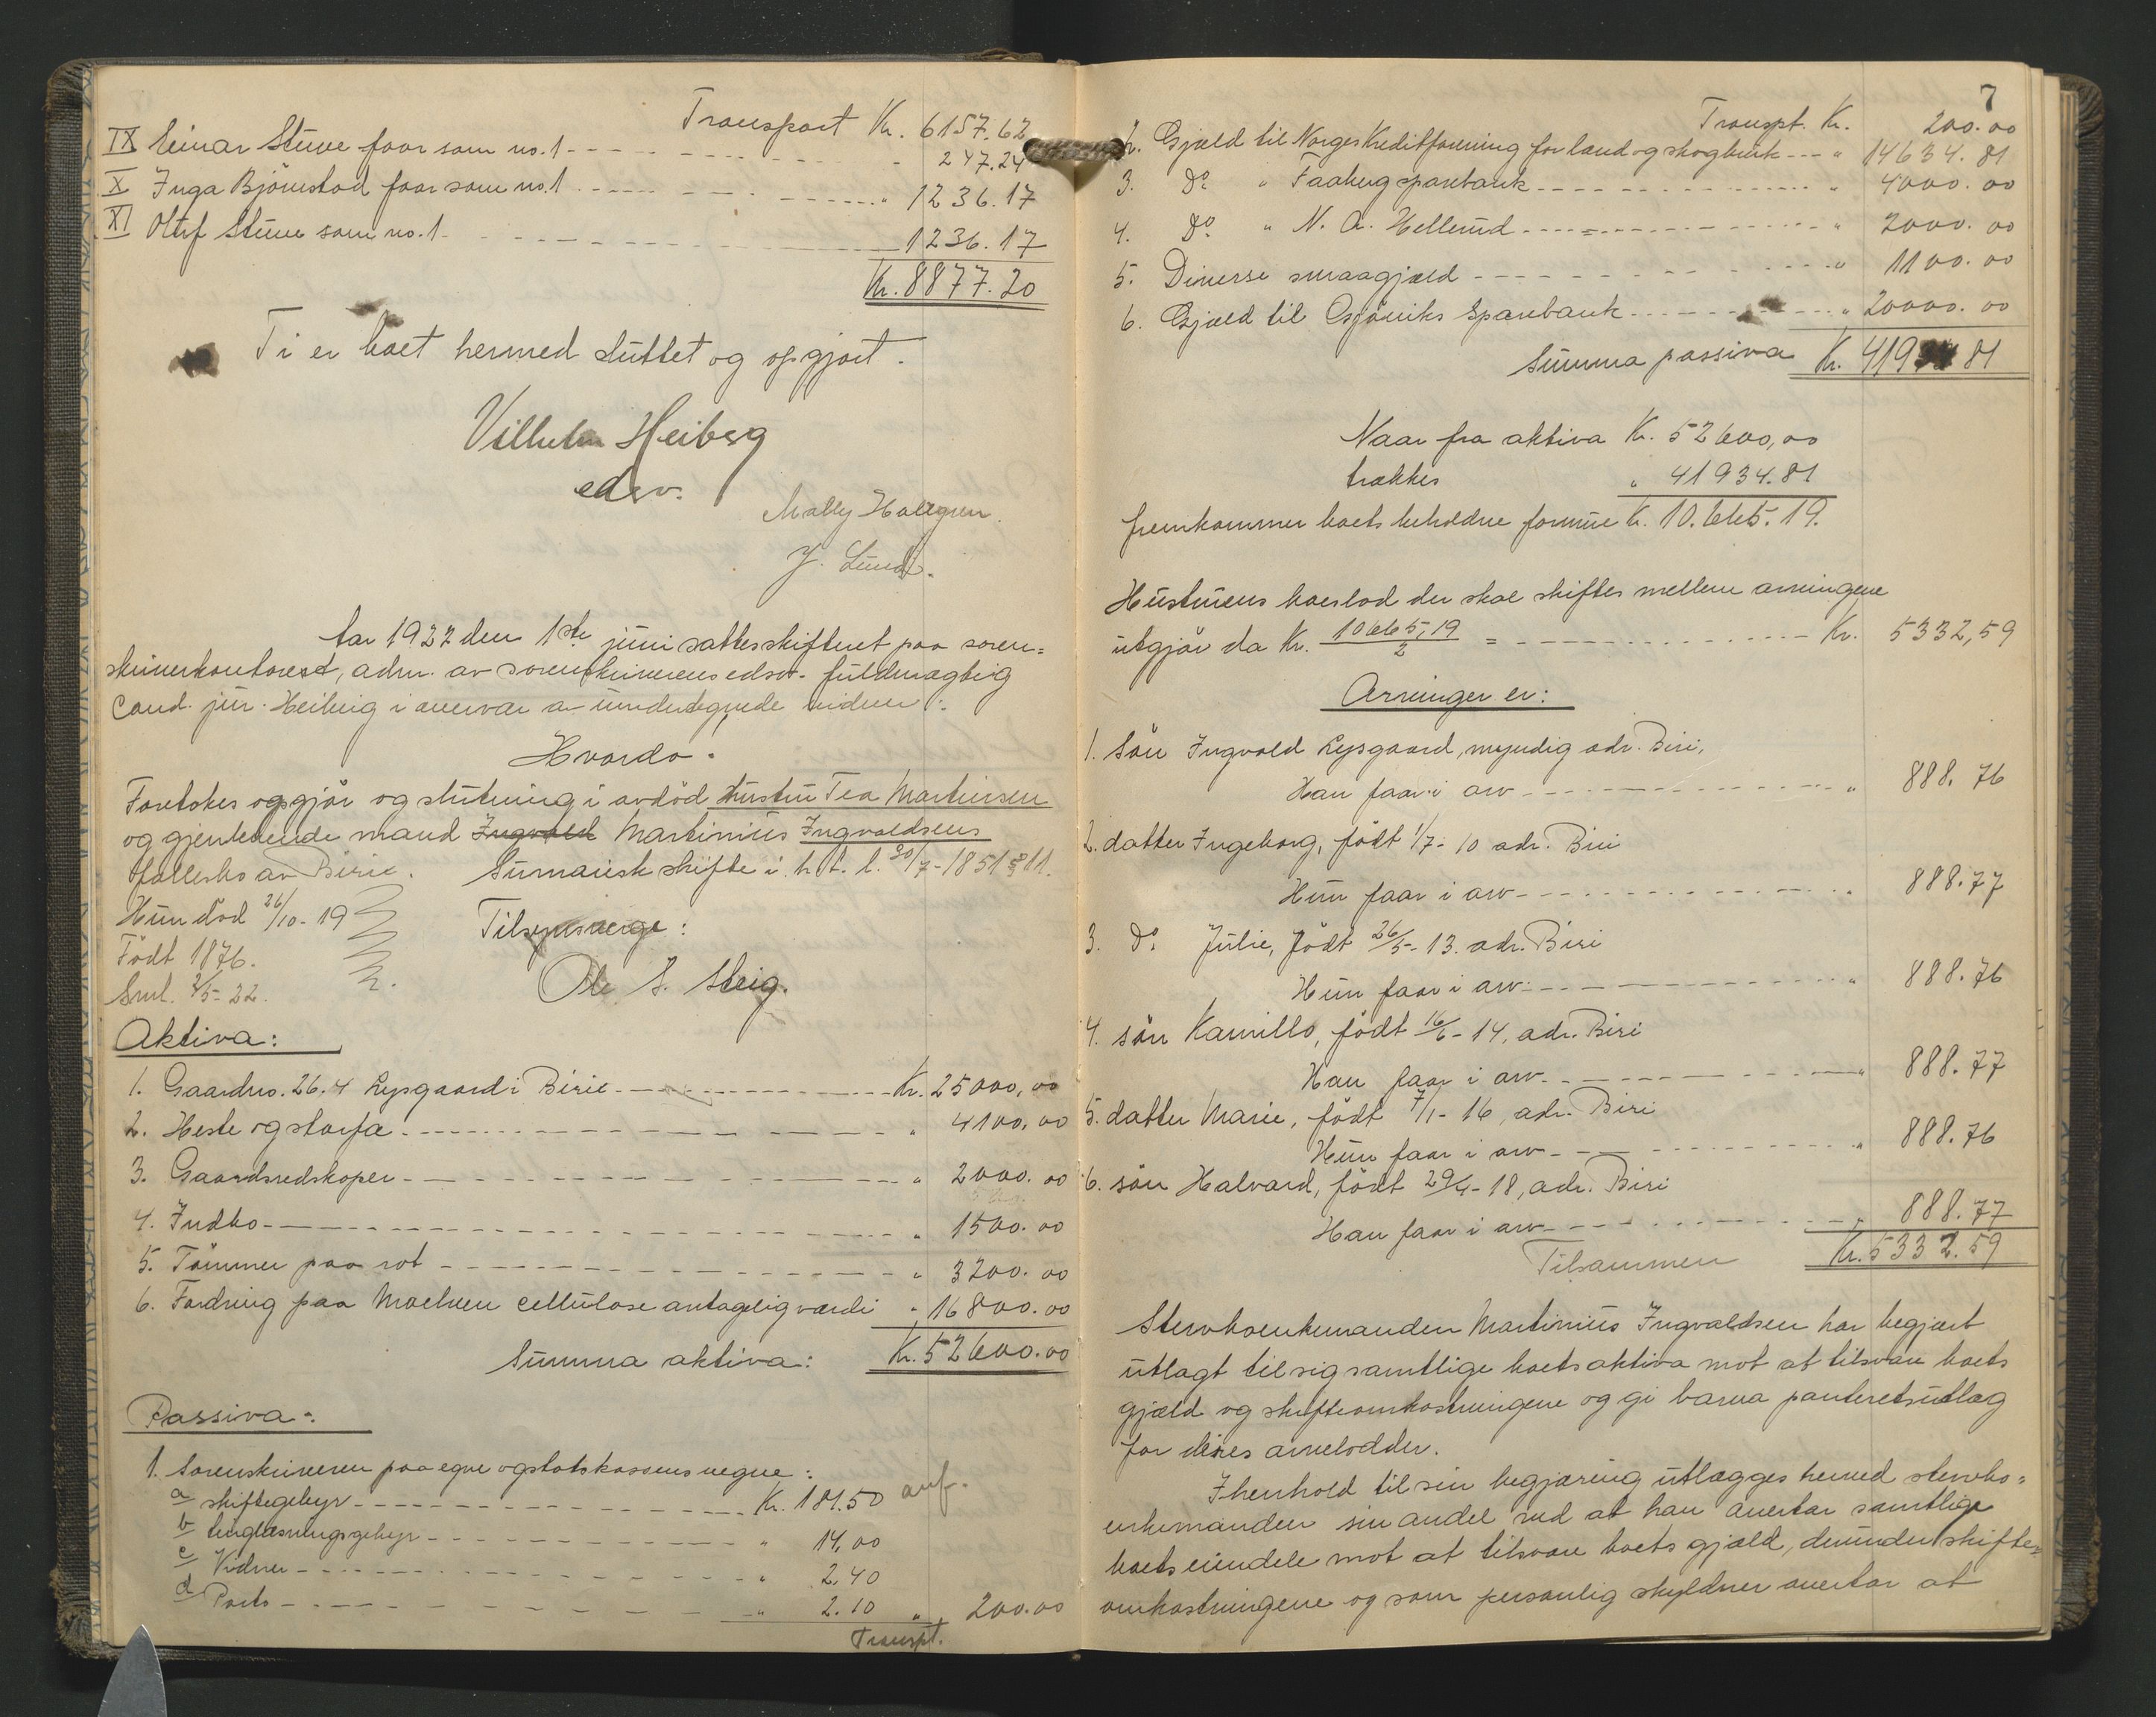 Transport Kr. 6157.62
IX Einar Stuve faar som no. 1 - - - - - - " 247.24
X Inga Björnstad faar som no. 1 - - - - - - " 1236.17
XI Oluf Stuve som no. 1 - - - - - - 1236.17
Kr. 8877.20
Ti er boet hermed sluttet og opgjort.
Vilhelm Heiberg
edsv.
Mally Hallgren
J. Lund.
Aar 1922 den 1ste juni sattes skifteret paa soren=
skriverkontoret, adm. av sorenskriverens edsv. fuldmægtig
Cand. jur. Heiberg i overvær av undertegnede vidner:
Hvorda.
Foretokes opgjör og slutning i avdöd hustru Tea Martinsen
og gjenlevende mand Ingvald Martinius Ingvaldsens
fællesbo av Biri. Sumarisk skifte i. h. t. l. 30/7-1851 § 11.
Hun död 26/10-19
Födt 1876.
Sml. 2/5-22.
Tilsynsverge:
Ole S. Steig.
Aktiva:
1. Gaardno. 26.4 Lysgaard i Biri - - - - - - Kr. 25000,00
2. Heste og storfæ - - - - - - " 4100,00
3. Gaardsredskaper - - - - - - " 2000.00
4. Indbo - - - - - - " 1500.00
5. Tömmer paa rot - - - - - - " 3200.00
6. Fordring paa Moelven cellulose antagelig værdi " 16800.00
Summa aktiva: Kr. 52600.00
Passiva:
1. Sorenskriveren paa egne og statskassens vegne:
a skiftegebyr - - - - - - Kr. 181.50 anf.
b tinglæsningsgebyr - - - - - - " 14,00
c Vidner - - - - - - " 2.40
d Porto - - - - - - " 2.10 " 200.00
Transpt.
7
Transpt. Kr. 200.00
2. Gjæld til Norges Kreditforening for land og skogbruk - - - " 14634.81
3. Do " Faaberg sparebank - - - - - - " 4000.00
4. Do " N. A. Hellerud - - - - - - " 2000.00
5. Diverse smaagjæld - - - - - - " 1100.00
6. Gjæld til Gjöviks Sparebank - - - - - - " 20000.00
Summa passiva Kr. 419 81
Naar fra aktiva Kr. 52600,00
trækkes " 41934.81
fremkommer boets beholdne formue Kr. 10.665.19.
Hustruens boeslod der skal skiftes mellem arvingene
utgjör da Kr. 10665,19 / 2 = - - - - - - Kr. 5332,59
Arvinger er:
1. Sön Ingvald Lysgaard, myndig adr. Biri,
Han faar i arv - - - - - - " 888.76
2. datter Ingeborg, födt 1/7-10 adr. Biri
Hun faar i arv - - - - - - " 888.77
3. Do Julie, födt 26/5-13. adr. Biri
Hun faar i arv: - - - - - - " 888.76
4. sön Kamillo, födt 16/6-14, adr. Biri
Han faar i arv. - - - - - - " 888.77
5. datter Marie, födt 7/1-16, adr. Biri
Hun faar i arv - - - - - - " 888.76
6. sön Halvard, födt 29/4-18, adr. Biri
Han faar i arv - - - - - - " 888.77
Tilsammen Kr. 5332.59
Stervboenkemanden Martinius Ingvaldsen har begjært
utlagt til sig samtlige boets aktiva mot at tilsvare boets
gjæld og skifteomkostningene og gi barna panteretsutlæg
for deres arvelodder.
I henhold til sin begjæring utlægges herved stervbo=
enkemanden sin andel ved at han overtar samtlige
boets eiendele mot at tilsvare boets gjæld, derunder skifte=
omkostningene og som personlig skyldner overtar at